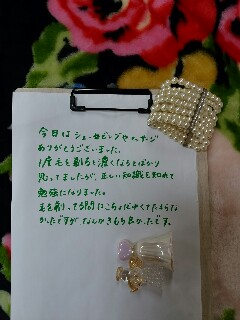 今日はシェービングやマッサージ
ありがとうございました。
1度毛を剃ると濃くなるとばかり
思ってましたが、正しい知識を知れて
勉強になりました。
毛を剃ってる間にこちょばゆくてたまらな
かったですが、なんかきもち良かったです。